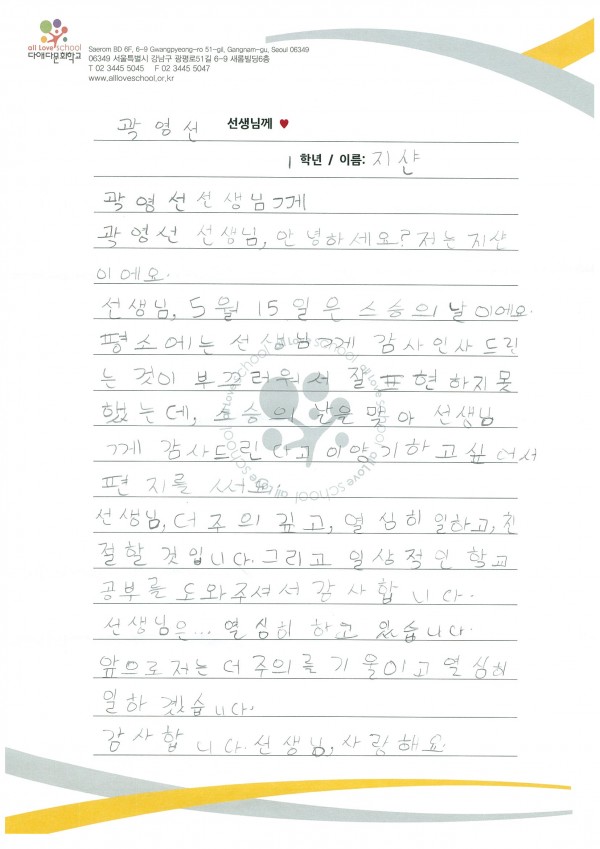 all Love school
다애다문화학교
Saerom BD 6F, 6-9 Gwangpyeong-ro 51-gil, Gangnam-gu, Seoul 06349
06349 서울특별시 강남구 광평로51길 6-9 새롬빌딩6층
T 02 3445 5045 F 02 3445 5047
www.allloveschool.or.kr
곽영선 선생님께 ♥
1 학년 / 이름: 지샨
곽영선선생님께
곽영선 선생님, 안녕하세요? 저는 지샨
이에요.
선생님, 5월 15일은 스승의 날이에요.
평소에는 선생님께 감사인사드린
는 것이 부끄러워서 잘 표현하지못
했는데, 스승의 날을 맞아 선생님
께 감사드린다고 이얌기하고싶어서
편지를 써요.
선생님, 더 주의 깊고, 열심히 일하고, 친
절할 것입니다. 그리고 일상적인 학교
공부를 도와주셔서 감사합니다.
선생님은... 열심히 하고 있습니다.
앞으로 저는 더 주의를 기울이고 열심히
일하겠습니다.
감사합니다. 선생님, 사랑해요.
all Love school